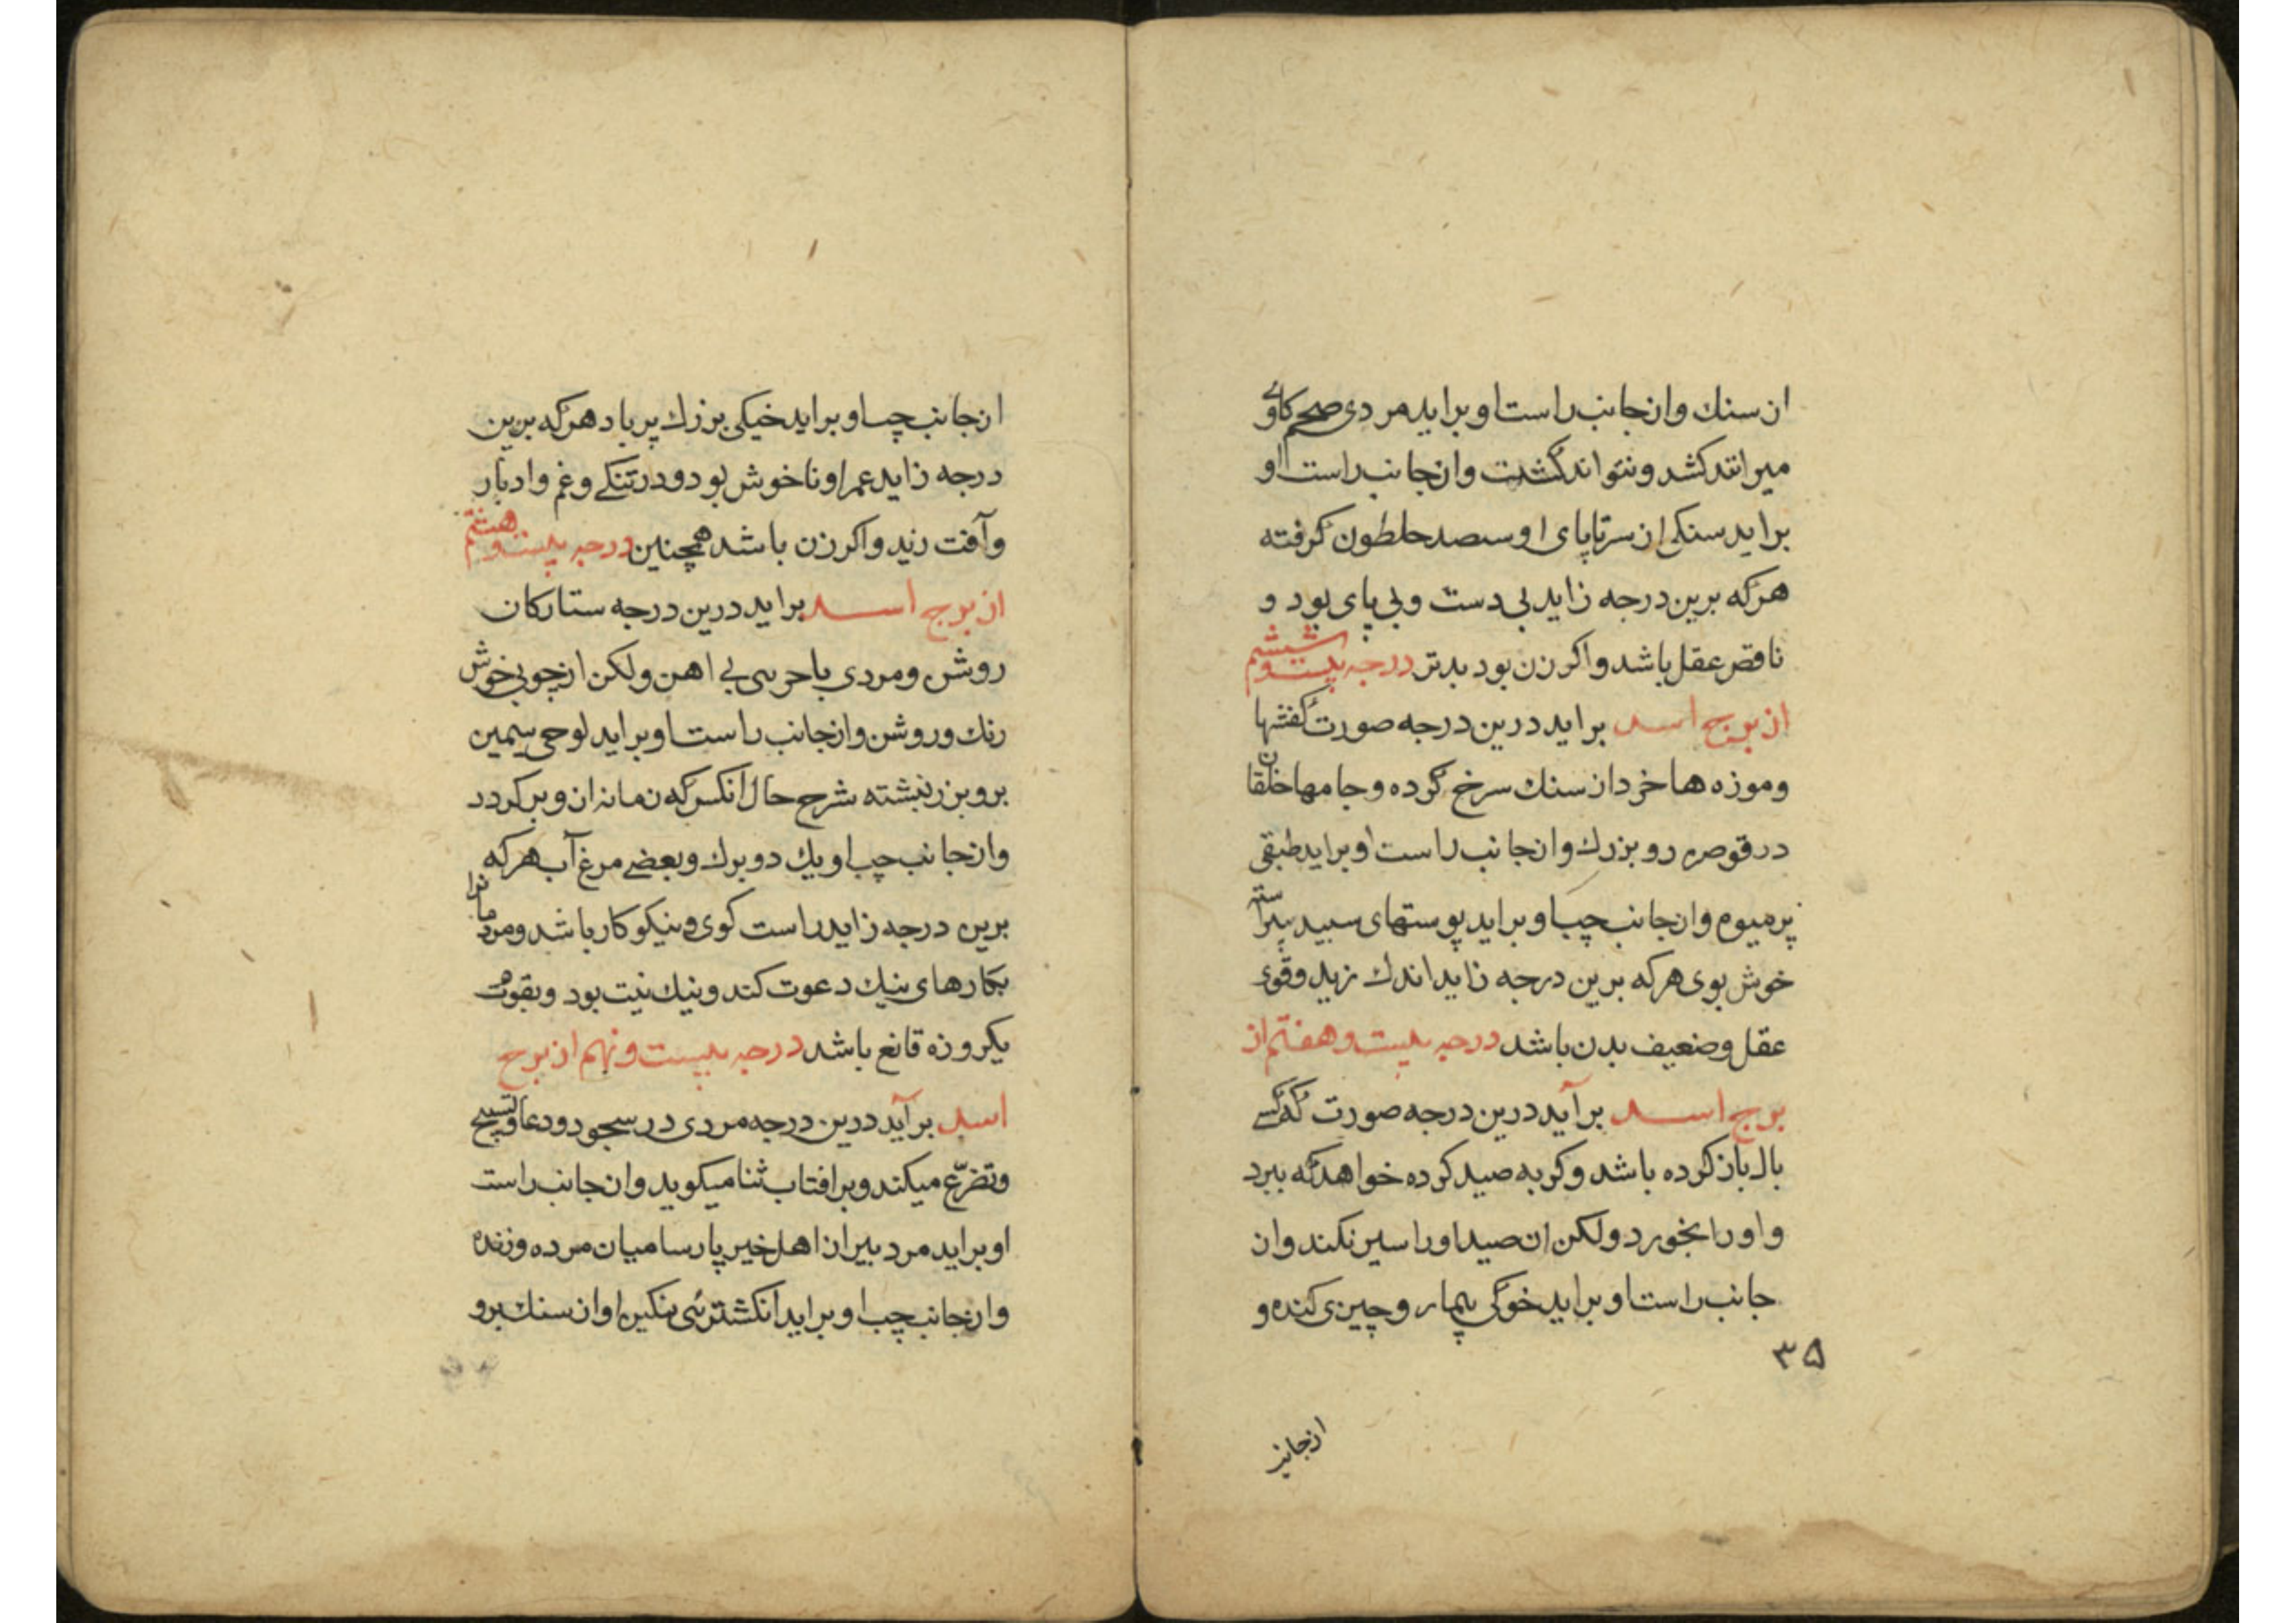 از سنك وازجانب راست او برايد مردى كاوى
ميراند كشد ونتواند كشت وازجانب راست او
برايد سنكى از سرتاپاى او سصد حلطون كرفته
هركه برين درجه زايد بى دست وبى پاى بود و
ناقص عقل باشد واكر زن بود بدتر درجه بيست وششم
از برج اسد برايد درين درجه صورت كفشها
وموزه ها خرد از سنك سرخ كرده وجامها خلقان
در قوصره رو بزرك وازجانب راست او برايد طبقى
پرميوه وازجانب چپ او برايد پوستهاى سپيد پيراسته
خوش بوى هركه برين درجه زايد اندك زيد وقوى
عقل وضعيف بدن باشد درجه بيست وهفتم از
برج اسد برآيد درين درجه صورت كه كسى
بال باز كرده باشد وكربه صيد كرده خواهد كه ببرد
واو را بخورد ولكن ان صيد او را سير نكند واز
جانب راست او برايد خوكى بيمار وچيزى كنده و
۳۵
ازجانب
ازجانب چپ او برايد خيكى بزرك پر باد هركه برين
درجه زايد عمر او ناخوش بود ودر تنكى وغم وادبار
وآفت زيد واكر زن باشد همچنين درجه بيست وهشتم
از برج اسد برايد درين درجه ستاركان
روشن ومردى با حربى بى اهن ولكن از چوبى خوش
رنك وروشن وازجانب راست او برايد لوحى سيمين
برو بزر نبشته شرح حال انكس كه زمانه ازو بركردد
وازجانب چپ او يك دو برك وبعضى مرغ آب هركه
برين درجه زايد راست كوى ونيكو كار باشد ومردمانرا
بكارهاى نيك دعوت كند ونيك نيت بود وبقوت
يكروزه قانع باشد درجه بيست ونهم از برج
اسد برآيد درين درجه مردى در سجود ودعا وتسبيح
وتضرّع ميكند وبر افتاب ثنا ميكويد وازجانب راست
او برايد مرد پير از اهل خير پارسا ميان مرده وزنده
وازجانب چپ او برايد انكشترئى نكين او از سنك برو